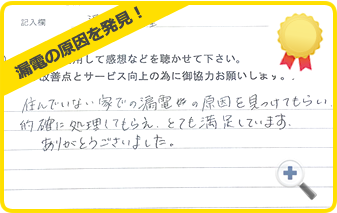 記入欄
漏電の原因を発見！
用して感想などを聴かせて下さい。
改善点とサービス向上の為に御協力お願いします。
住んでいない家での漏電の原因を見つけてもらい
的確に処理してもらえ、とても満足しています。
ありがとうございました。